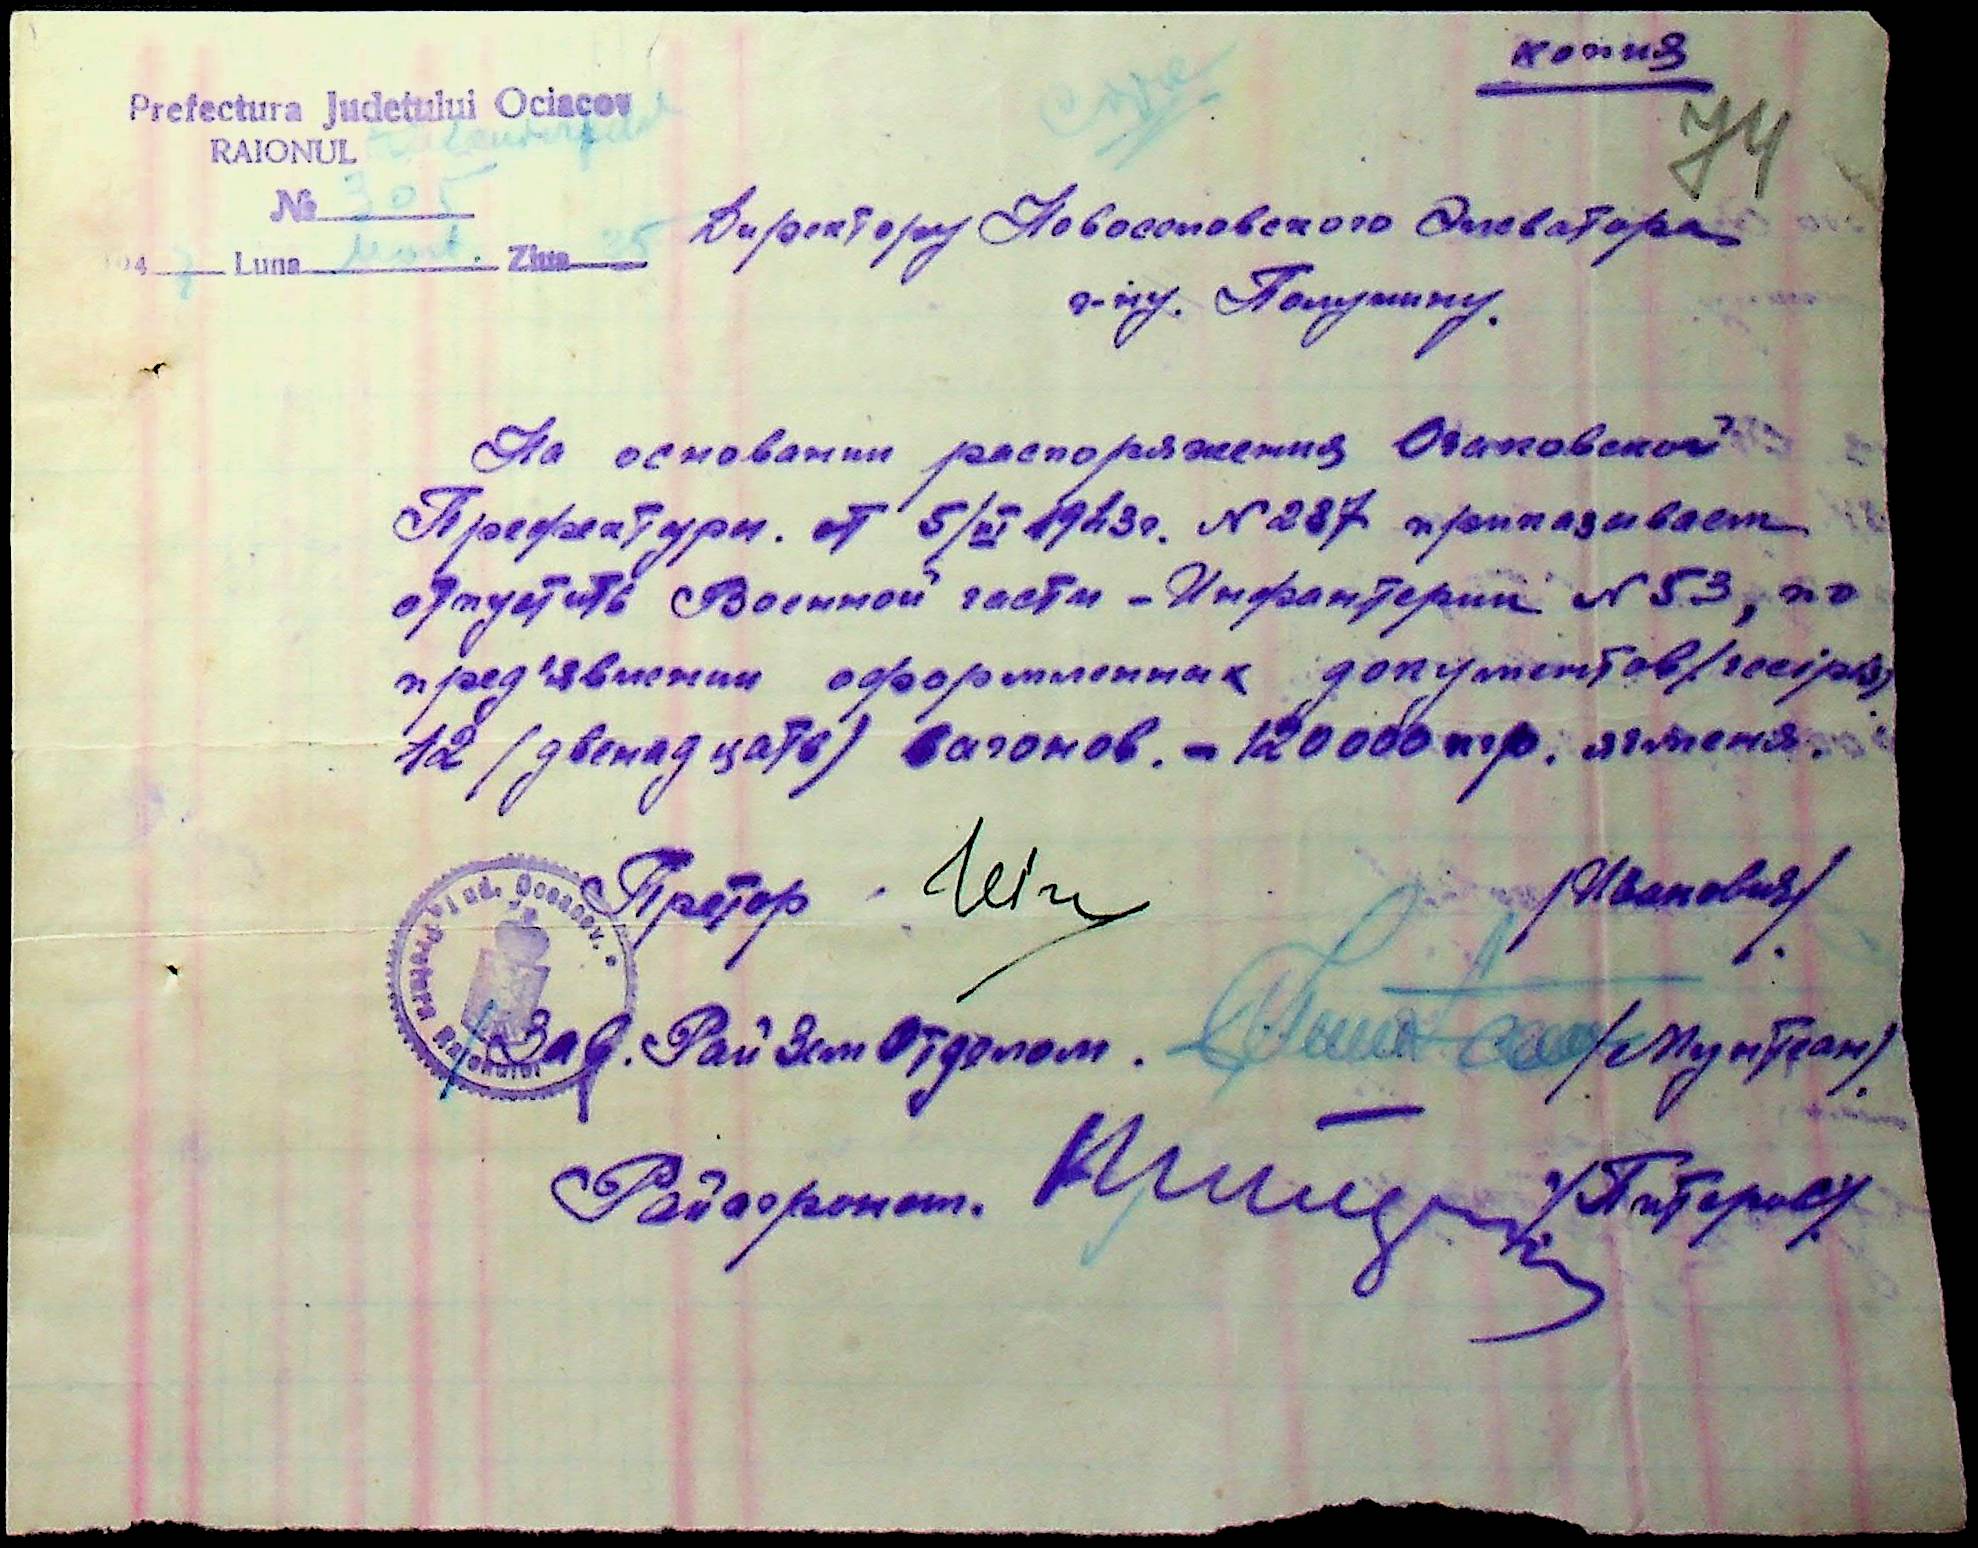 копия
74
Prefectura Judetului Ociacov
RAIONUL
№ 305
194 3 Luna Mart. Ziua 25
Директору Новоселовского Элеватора
г-ну. Полунину.
На основании распоряжения Очаковской
Префектуры. от 5/III 1943г. N 287 приказывает
отпустить Военной части - Инфантерии N 53, по
пред'явлении оформленных документов/
12 (двенадцать) вагонов. - 120000 кгр. ячменя.
Претор /Иванович/
Зав. РайЗемОтделом. /Мунтеан/
Райагроном. /Питеров/
Pretura Raionului Jud. Oceacov.